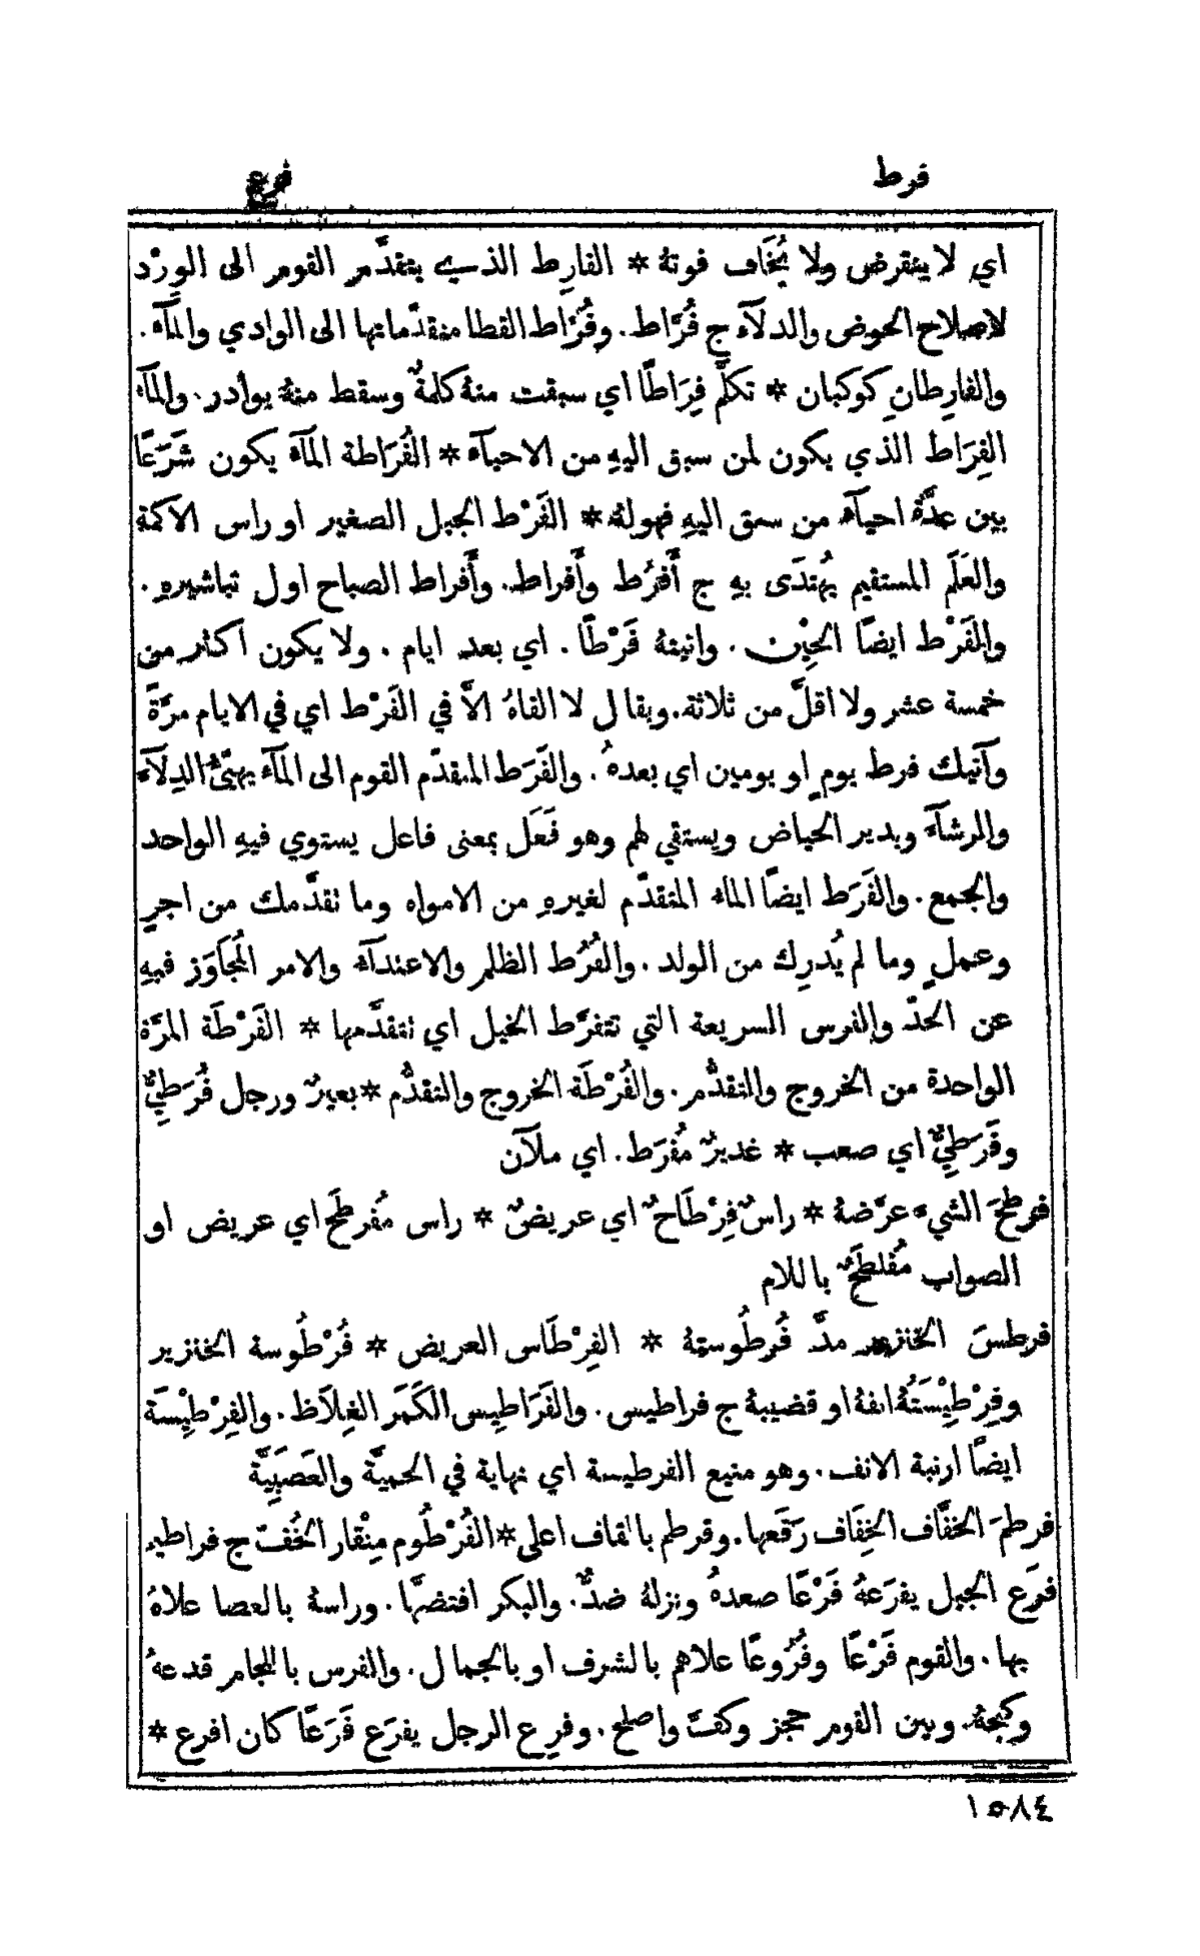 فرط
فرع
اي لا ينقرض ولا يُخَاف فوتهُ * الفارِط الذي يتقدَّم القوم الى الوِرْد
لاصلاح الحوض والدلآء ج فُرَّاط. وفُرَّاط القطا متقدّماتها الى الوادي والمآء.
والفارِطانِ كوكبان * تكلَّم فِرَاطًا اي سبقت منهُ كلمةٌ وسقط منهُ بوادر. والمآء
الفِرَاط الذي يكون لمن سبق اليهِ من الاحيآء * الفُرَاطة المآء يكون شَرَعًا
بين عدَّة احيآء من سبق اليهِ فهو لهُ * الفَرْط الجبل الصغير او راس الاكمة
والعَلَم المستقيم يُهتدَى بهِ ج أَفرُط وأَفراط. وأَفراط الصباح اول تباشيرهِ.
والفَرْط ايضًا الحِيْن. واتيتهُ فَرْطًا. اي بعد ايام. ولا يكون اكثر من
خمسة عشر ولا اقلَّ من ثلاثة. ويقال لا القاهُ الاَّ في الفَرْط اي في الايام مرَّةً
وآتيك فرط يومٍ او يومين اي بعدهُ. والفَرَط المتقدّم القوم الى المآء يهيّئُ الدِلآء
والرشآء ويدير الحياض ويستقي لهم وهو فَعَل بمعنى فاعل يستوي فيهِ الواحد
والجمع. والفَرَط ايضًا الماء المتقدّم لغيرهِ من الامواه وما تقدَّمك من اجرٍ
وعملٍ وما لم يُدرِك من الولد. والفُرُط الظلم والاعتدآء والامر المُجَاوَز فيهِ
عن الحدّ والفرس السريعة التي تتفرَّط الخيل اي تتقدَّمها * الفَرْطَة المرَّة
الواحدة من الخروج والتقدُّم. والفُرْطَة الخروج والتقدُّم * بعيرٌ ورجل فُرَطِيٌّ
وفَرَطِيٌّ اي صعب * غديرٌ مُفرَط. اي ملآن
فرطحَ الشيء عرَّضهُ * راسٌ فِرْطَاحٌ اي عريضٌ * راس مُفرطَح اي عريض او
الصواب مُفلطَحٌ باللام
فرطسَ الخنزير مدَّ فُرطُوستهُ * الفِرْطَاس العريض * فُرْطُوسة الخنزير
وفِرْطِيْسَتُهُ انفهُ او قضيبهُ ج فراطيس. والفَرَاطِيس الكَمَر الغِلَاظ. والفِرْطِيْسَة
ايضًا ارنبة الانف. وهو منيع الفرطيسة اي نهاية في الحميَّة والعَصَبِيَّة
فرطمَ الخفَّاف الخِفَاف رَقَعها. وقرطم بالقاف اعلى * الفُرْطُوم مِنْقار الخُفّ ج فراطيم
فرَع الجبل يفرَعهُ فَرْعًا صعدهُ ونزلهُ ضدٌّ. والبكر افتضَّها. وراسهُ بالعصا علاهُ
بها. والقوم فَرْعًا وفُرُوعًا علاهم بالشرف او بالجمال. والفرس باللجام قدعهُ
وكبحهُ. وبين القوم حجز وكفَّ واصلح. وفرِع الرجل يفرَع فَرَعًا كان افرع *
١٥٨٤